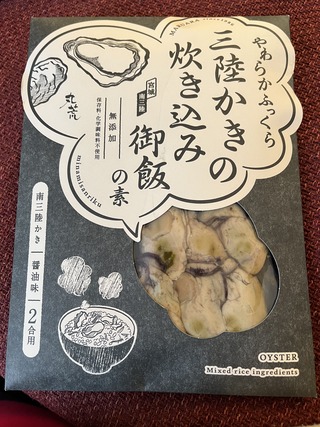 MARUARA
やわらかふっくら
三陸かきの
炊き込み
御飯
の素
宮城
南三陸
無添加
保存料・化学調味料不使用
minamisanriku
丸荒
南三陸かき
醤油味
2合用
OYSTER
Mixed rice ingredients